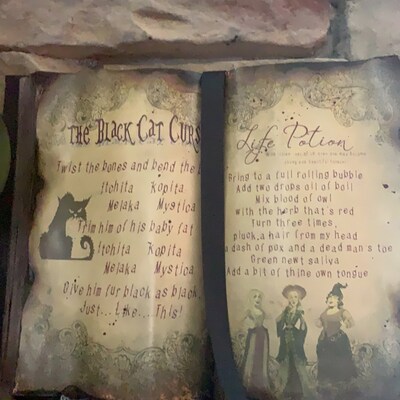 The Black Cat Curs
Twist the bones and bend the b
Itchita Kopita
Melaka Mystica
Trim him of his baby fat
Itchita Kopita
Melaka Mystica
Give him fur black as black
Just... Like... This!
Life Potion
Bring to a full rolling bubble
Add two drops oil of boil
Mix blood of owl
with the herb that's red
Turn three times,
pluck a hair from my head
a dash of pox and a dead man's toe
Green newt saliva
Add a bit of thine own tongue